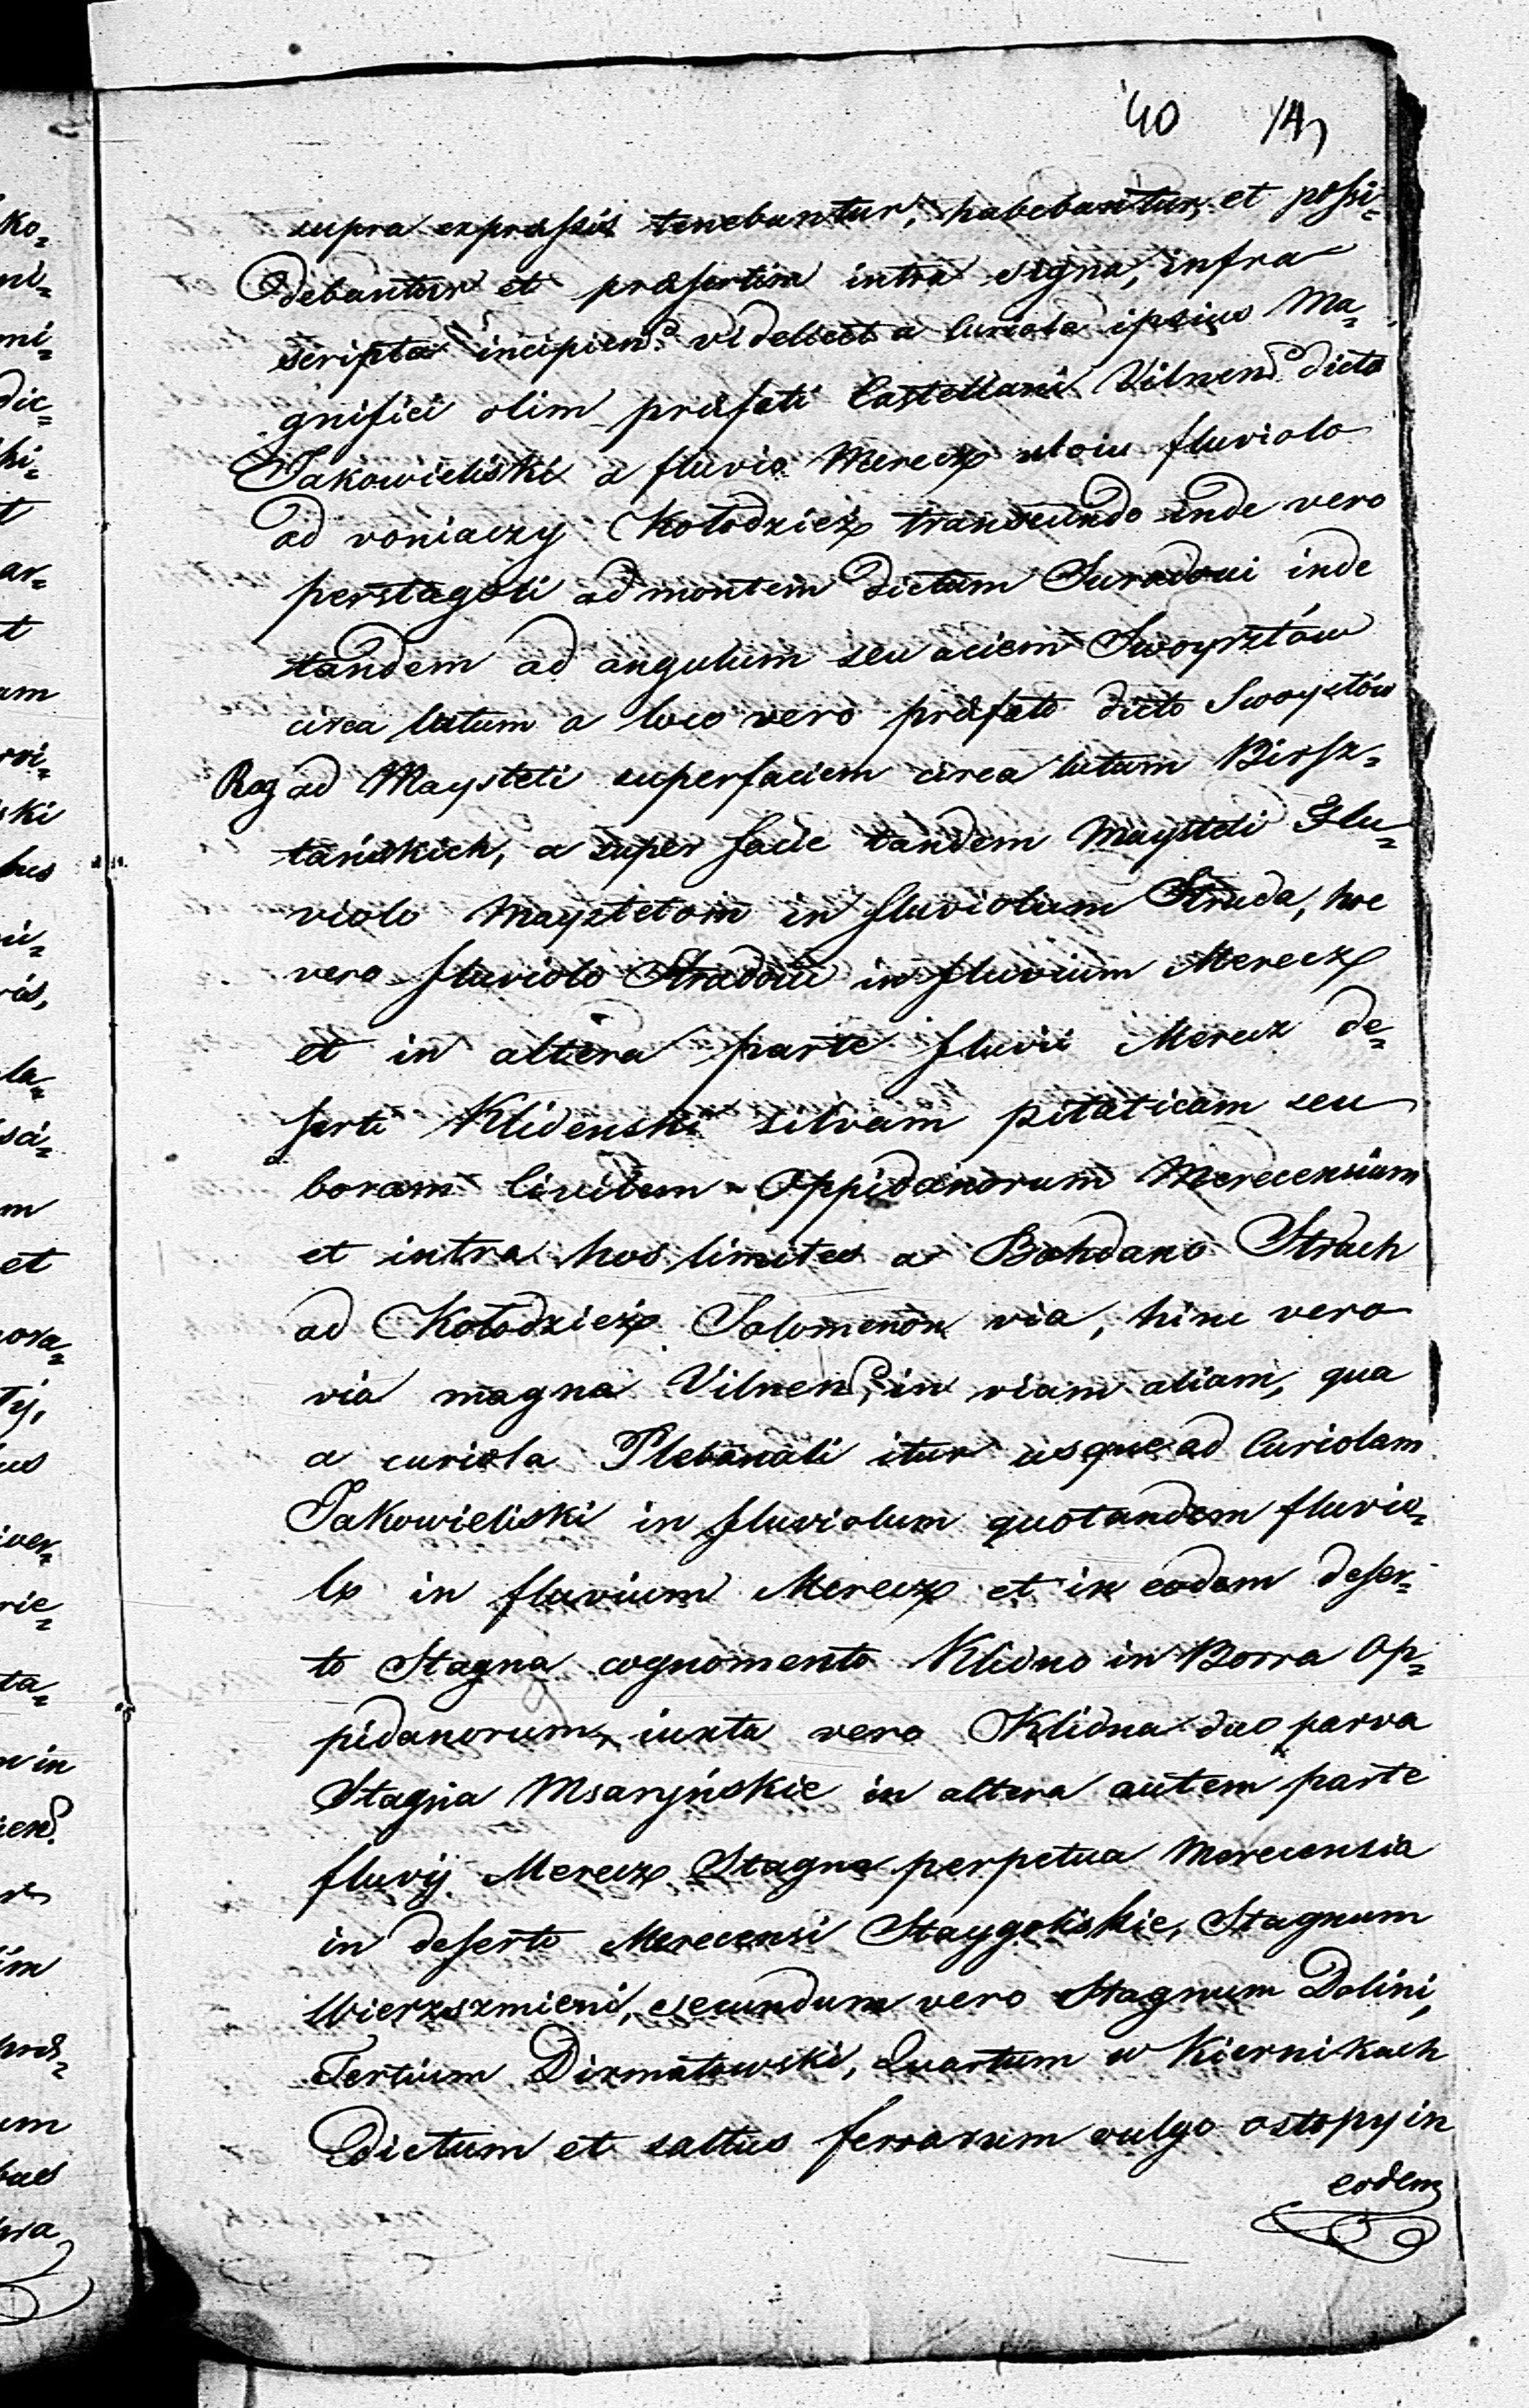 40 14
supra expressis tenebantur, habebantur et possi=
debantur et præsertim intra signa, infra
scripta incipien. videlicet a curiola ipsius Ma=
gnifici olim præfati Castellani Vilnen. dicta
Jakowieliski a fluvio Merecz fluviolo
ad voniaczy Kołodzież transeundo inde vero
perstagoli ad montem dictum Suradoui inde
tandem ad angulum seu aciem Swoysztów
circa lutum a loco vero præfato dicto Swoysztów
Rog ad Maysteti superfaciem circa lutum Birsz=
tańskich, a super facie tandem Maysteti Flu=
violo Maysztetom in fluviolum Struda, hoc
vero fluviolo Stradoiu in fluvium Merecz
et in altera parte fluvii Merecz de=
serti Klidenski silvam pitaticam seu
boram Civilem Oppidanorum Merecensium
et intra hos limites a Bohdano Strach
ad Kołodzież Solomenon via, hinc vero
via magna Vilnen. in viam aliam, qua
a curiola Plebanali itur usque ad Curiolam
Jakowieliski in fluviolum quotandem fluvio=
lo in fluvium Merecz et in eodem deser=
to Stagna cognomento Klidno in Borra Op=
pidanorum, iuxta vero Klidna duo parva
Stagna Msaryńskie in altera autem parte
fluvij Merecz Stagna perpetua Merecensia
in deserto Merecensi Staygoliskie, Stagnum
Wierzszmieni, secundum vero Stagnum Dolini,
Tertium Dirmatowski, Quartum w Kiernikach
Dictum et saltus ferrarum vulgo ostopy in
eodem